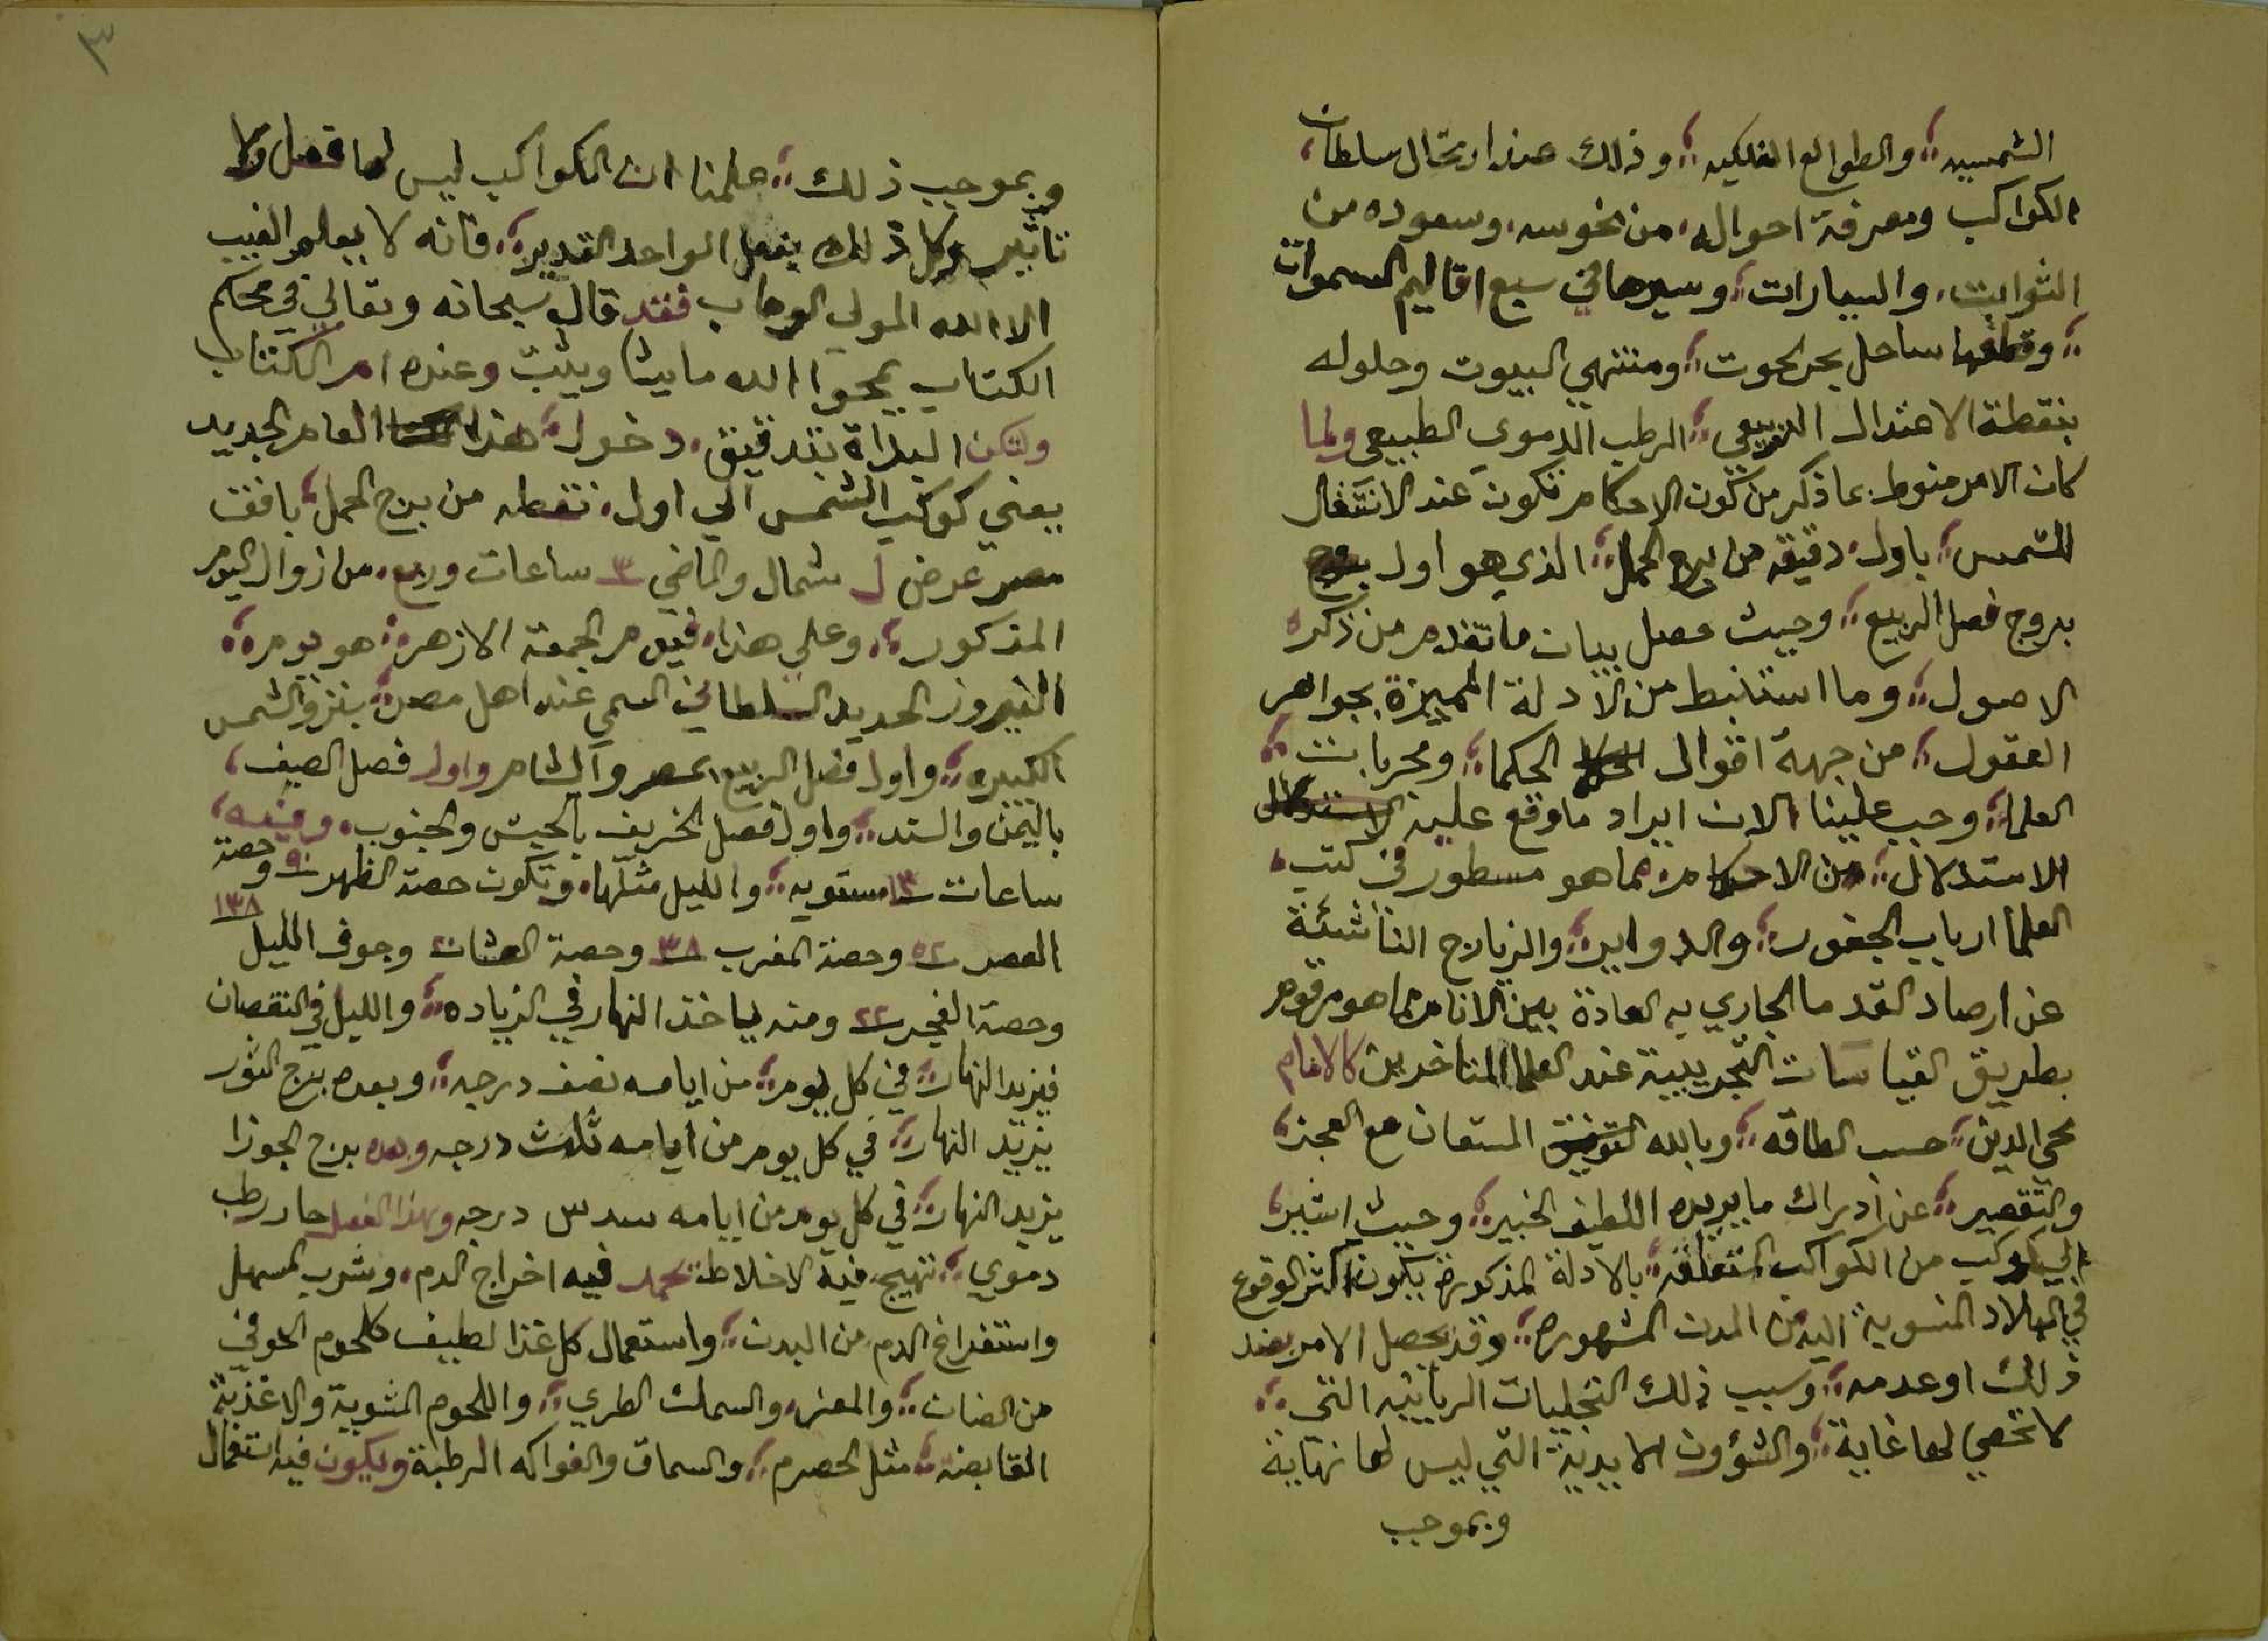 الشمسيه؛ والطوالع الفلكيه؛ وذلك عند ارتحال سلطان
الكواكب ومعرفة احواله، من نحوسه، وسعوده من
الثوابت، والسيارات؛ وسيرها في سبع اقاليم السموات
؛ وقطعها ساحل بحر الحوت؛ ومنتهي البيوت وحلوله
بنقطة الاعتدال الربيعي؛ الرطب الدموي الطبيعي ولما
كان الامر منوط بما ذكر من كون الاحكام تكون عند الانتقال
للشمس؛ باول دقيقه من برج الحمل؛ الذي هو اول
بروج فصل الربيع؛ وحيث حصل بيان ما تقدم من ذكره
الاصول؛ وما استنبط من الادلة المميزة بجواهر
العقول؛ من جهة اقوال الحكما؛ ومجربات؛
العلما؛ وجب علينا الان ايراد ما وقع عليه
الاستدلال؛ من الاحكام مما هو مسطور في كتب،
العلما ارباب الجفور؛ والدواير؛ والزيارج الناشئة
عن ارصاد القدما الجاري به العادة بين الانام مما هو مرقوم
بطريق القياسات التجريبية عند العلما المتاخرين كالامام
محي الدين؛ حسب الطاقه؛ وبالله المستعان مع العجز،
والتقصير؛ عن ادراك ما يريده اللطيف الخبير؛ وحيث اشير،
الي كوكب من الكواكب المتعلقه؛ بالادلة المذكورة يكون اكثر الوقوع
في البلاد المنسوبة اليه من المدن المشهوره؛ وقد يحصل الامر بضد
ذلك او عدمه؛ وسبب ذلك التجليات الربانيه التي؛
لا تحصي لها غاية؛ والشؤون الابدية التي ليس لها نهاية
وبموجب
٣
وبموجب ذلك؛ علمنا ان الكواكب ليس لها فعل ولا
تاثير وكل ذلك بفعل الواحد القدير؛ فانه لا يعلم الغيب
الا الله المولي الوهاب فقد قال سبحانه وتعالي في محكم
الكتاب يمحوا الله ما يشا ويثبت وعنده ام الكتاب
ولتكن البداة بتدقيق، دخول؛ هذا العام الجديد
يعني كوكب الشمس الي اول، نقطه من برج الحمل؛ بافق
مصر عرض ل شمال والماضي ٣ ساعات وربع، من زوال اليوم
المذكور؛ وعلي هذا، فيوم الجمعة الازهر؛ هو يوم؛
النيروز الجديد السلطاني المسمي عند اهل مصر؛ بنزو الشمس
الكبيره؛ واول فصل الربيع بمصر والشام واول فصل الصيف،
باليمن والسند؛ واول فصل الخريف بالحبش والجنوب، وفيه،
ساعات ١٢ مستويه؛ والليل مثلها، وتكون حصة الظهر وحصة
العصر ٥٢ وحصة المغرب ٣٨ وحصة العشا ٢٠ وجوف الليل ١٣٨
وحصة الفجر ٢٢ ومنه ياخذ النهار في الزياده؛ والليل في النقصان
فيزيد النهار؛ في كل يوم؛ من ايامه نصف درجه؛ وبعده برج الثور
يزيد النهار؛ في كل يوم من ايامه ثلث درجه وبعده برج الجوزا
يزيد النهار؛ في كل يوم من ايامه سدس درجه وهذا الفصل حار رطب
دموي؛ تهيج فيه الاخلاط يحمد فيه اخراج الدم، وشرب المسهل
واستفراغ الدم من البدن؛ واستعمال كل غذا لطيف كلحوم الحوفي
من الضان؛ والمعز، والسمك الطري؛ واللحوم المشوية والاغذية
القابضه؛ مثل الحصرم؛ والسماق والفواكه الرطبة ويكون فيه استعمال